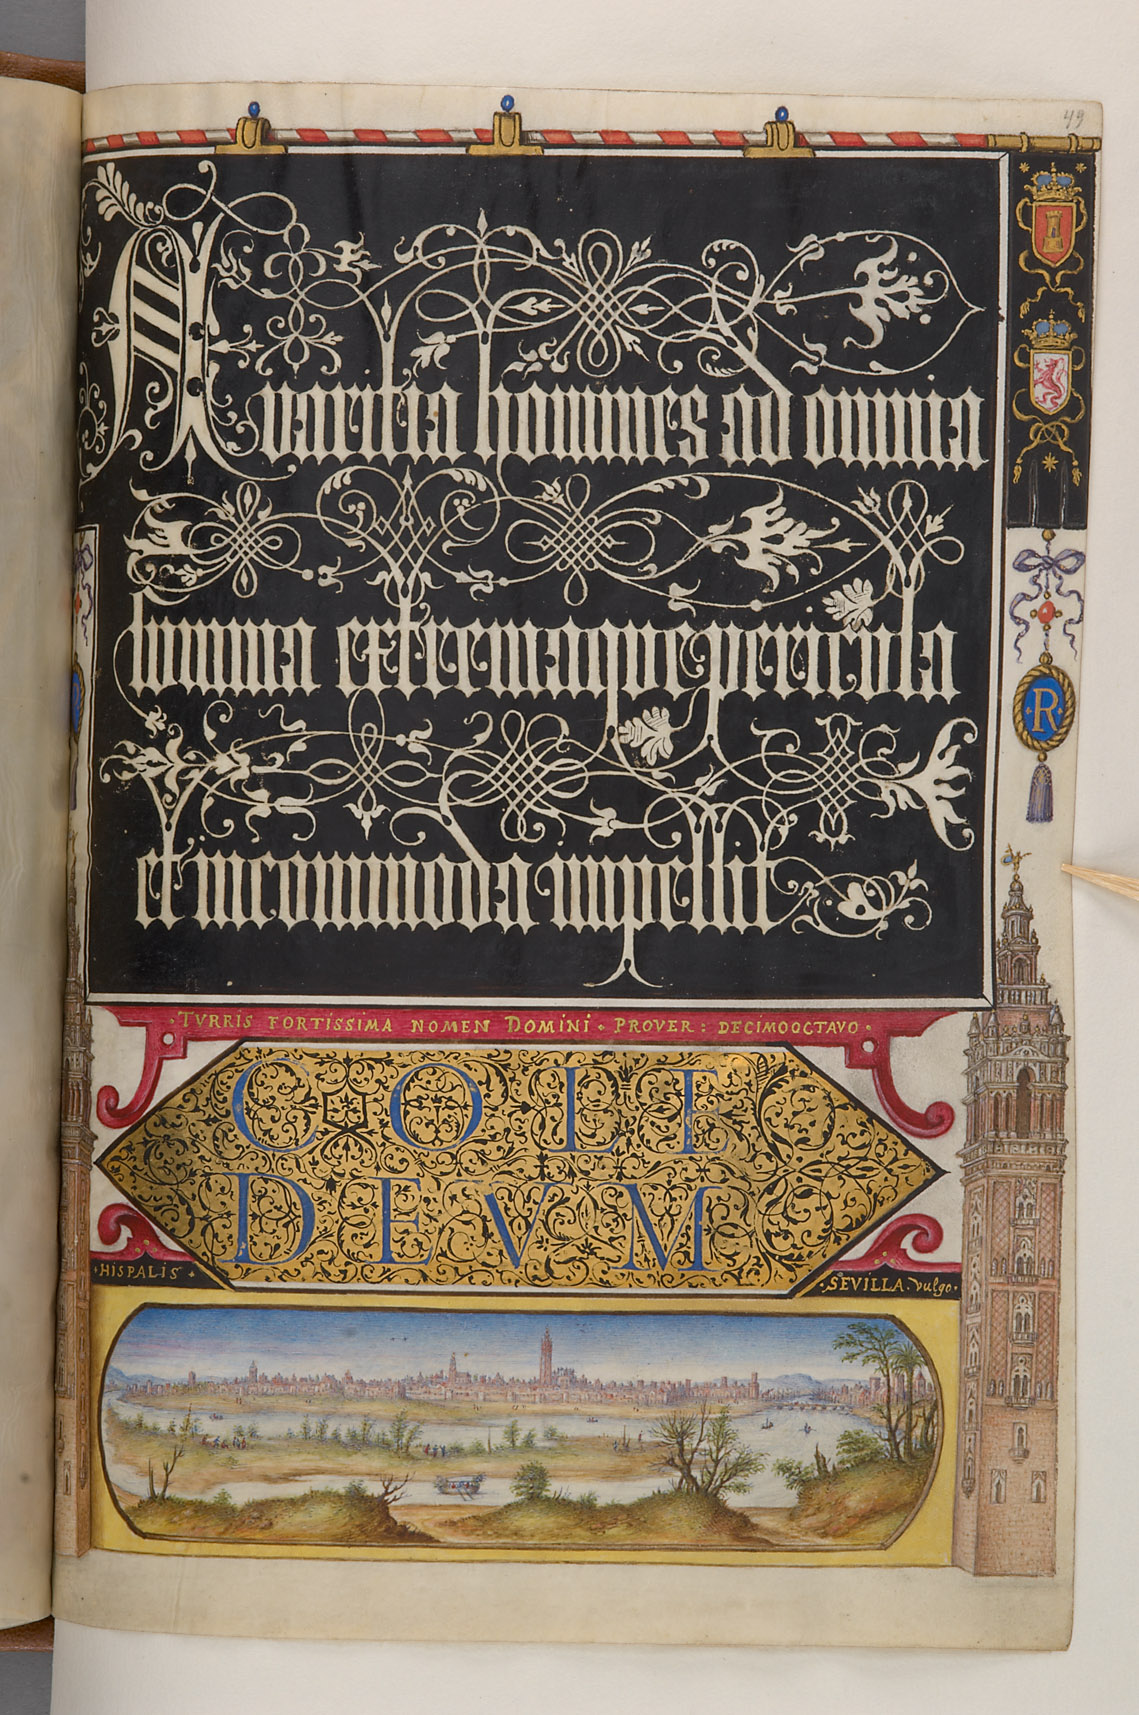 49
Avaritia homines ad omnia
summa extremaque pericula
et incommoda impellit
R
TVRRIS FORTISSIMA NOMEN DOMINI · PROVER: DECIMOOCTAVO ·
COLE
DEVM
· HISPALIS ·
· SEVILLA · vulgo ·